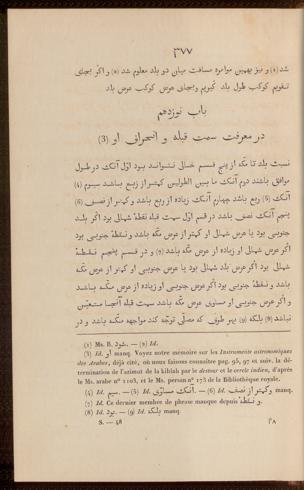 ٣٧٧
شد (1) و نیز بهمین موامره مسافت میان دو بلد معلوم شد (2) و اگر بجای
تقویم کوکب طول بلد گیریم وبجای عرض کوکب عرض بلد
باب نوزدهم
در معرفت سمت قبله و انحراف او (3)
نسبت بلد تا مکّه از پنج قسم خالی نتواند بود اوّل آنک در طول
موافق باشند دوم آنک ما بین الطولین کمتر از ربع باشد سیوم (4)
آنک (5) ربع باشد چهارم آنک زیاده از ربع باشد و کمتر از نصف (6)
پنجم آنک نصف باشد در قسم اوّل سمت قبله نقطهٔ شمالی بود اگر بلد
جنوبی بود یا عرض شمالی او کمتر از عرض مکّه باشد و نقطهٔ جنوبی بود
اگر عرض شمالی او زیاده از عرض مکّه باشد (7) و در قسم پنجم نقطهٔ
شمالی بود اگر عرض بلد شمالی بود یا عرض جنوبی او کمتر از عرض مکّه
باشد و نقطهٔ جنوبی بود اگر عرض جنوبی او زیاده از عرض مکّه باشد
و اگر عرض جنوبی او مساوی عرض مکّه باشد سمت قبله آنجا متعیّن
نباشد (8) بلکه (9) بهر طرف که مصلّی توجّه کند مواجهه مکّه باشد و در
(1) Ms. B. شود. — (2) Id.
(3) Id. او manq. Voyez notre mémoire sur les Instruments astronomiques
des Arabes, déjà cité, où nous faisons connaître pag. 95, 97 et suiv. la dé-
termination de l'azimut de la kiblah par le destour et le cercle indien, d'après
le Ms. arabe n° 1103, et le Ms. persan n° 173 de la Bibliothèque royale.
(4) Id. سیم. — (5) Id. آنک مساوی. — (6) Id. وکمتر از نصف manq.
(7) Id. Ce dernier membre de phrase manque depuis و نقطهٔ.
(8) Id. بود. — (9) Id. بلکه manq.
S. — 48
٤٨